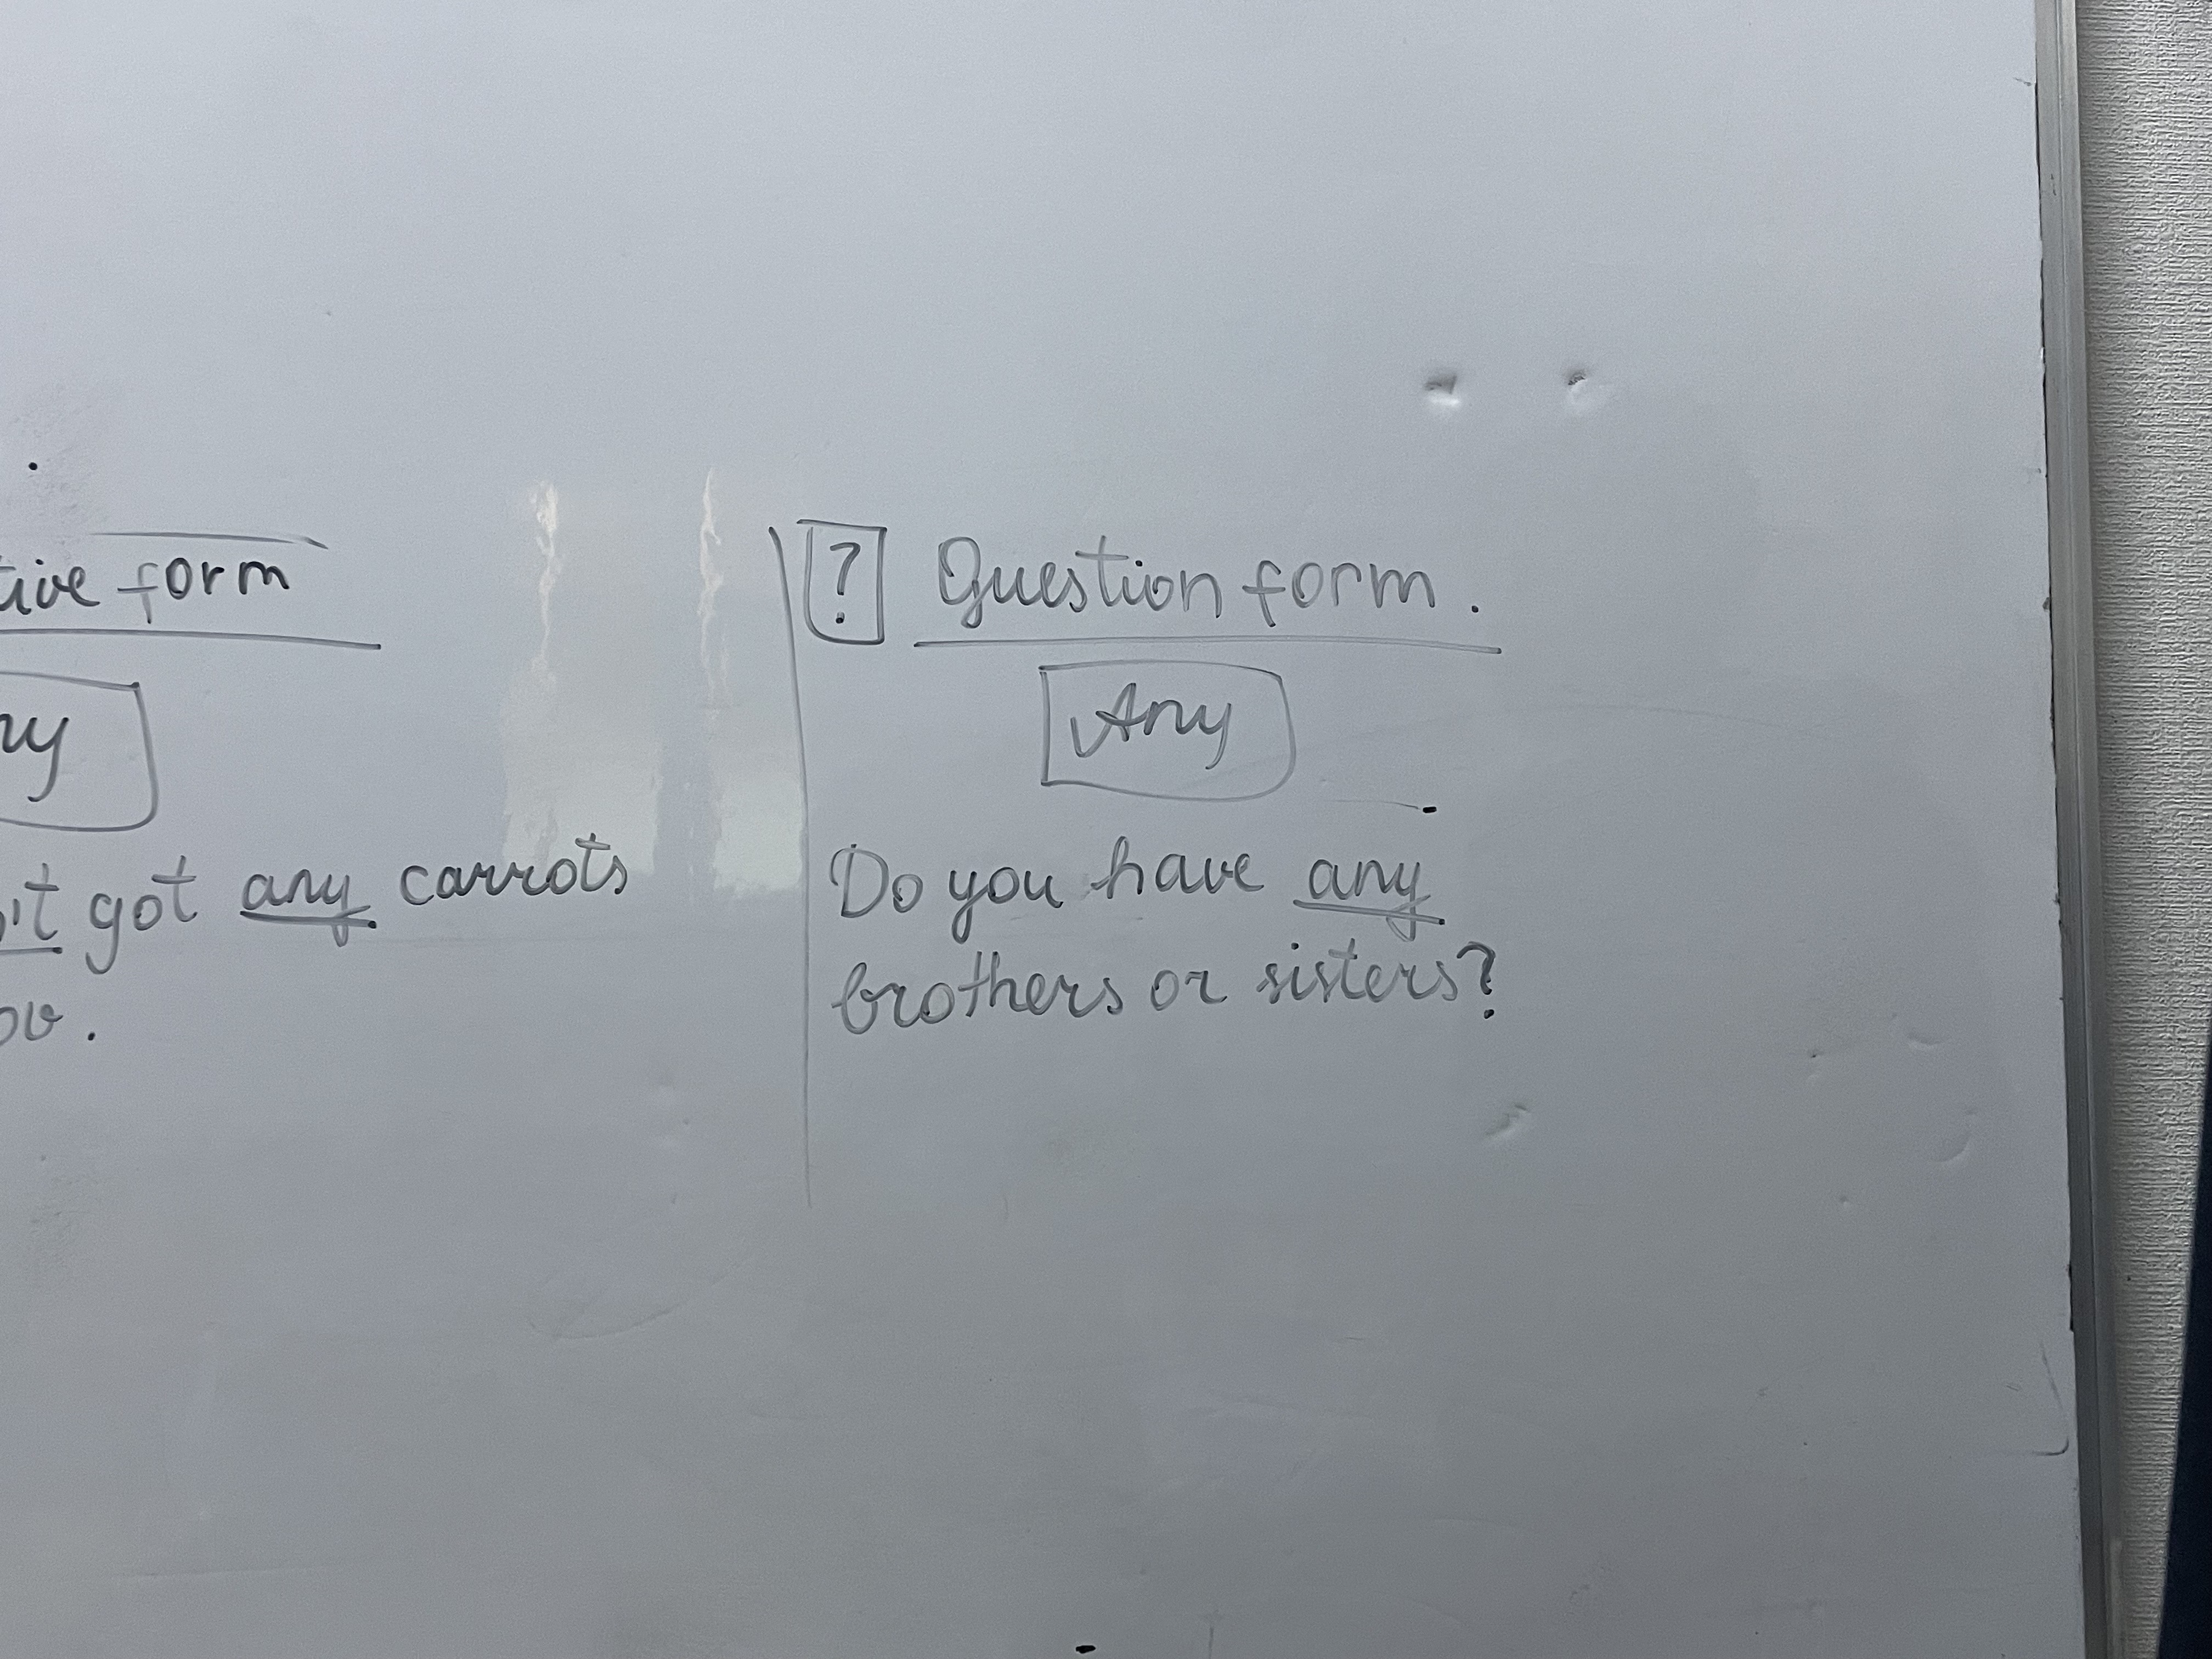 form
got any carrots
? Question form.
Any
Do you have any
brothers or sisters?